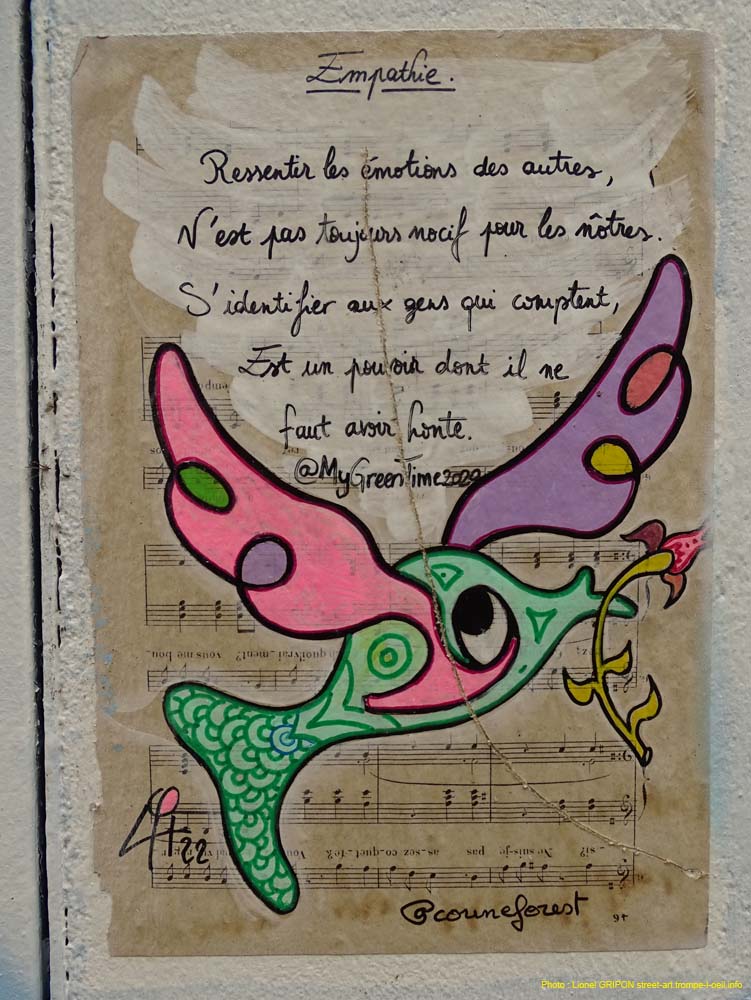 Empathie.
Ressentir les émotions des autres,
N'est pas toujours nocif pour les nôtres.
S'identifier aux gens qui comptent,
Est un pouvoir dont il ne
faut avoir honte.
@MyGreenTime2022
vous me bou
quoi vrai_ment?
22
_si?
Ne suis-je pas as_sez co_quet_te?
Vous
@corineforest
94
Photo : Lionel GRIPON street-art.trompe-l-oeil.info